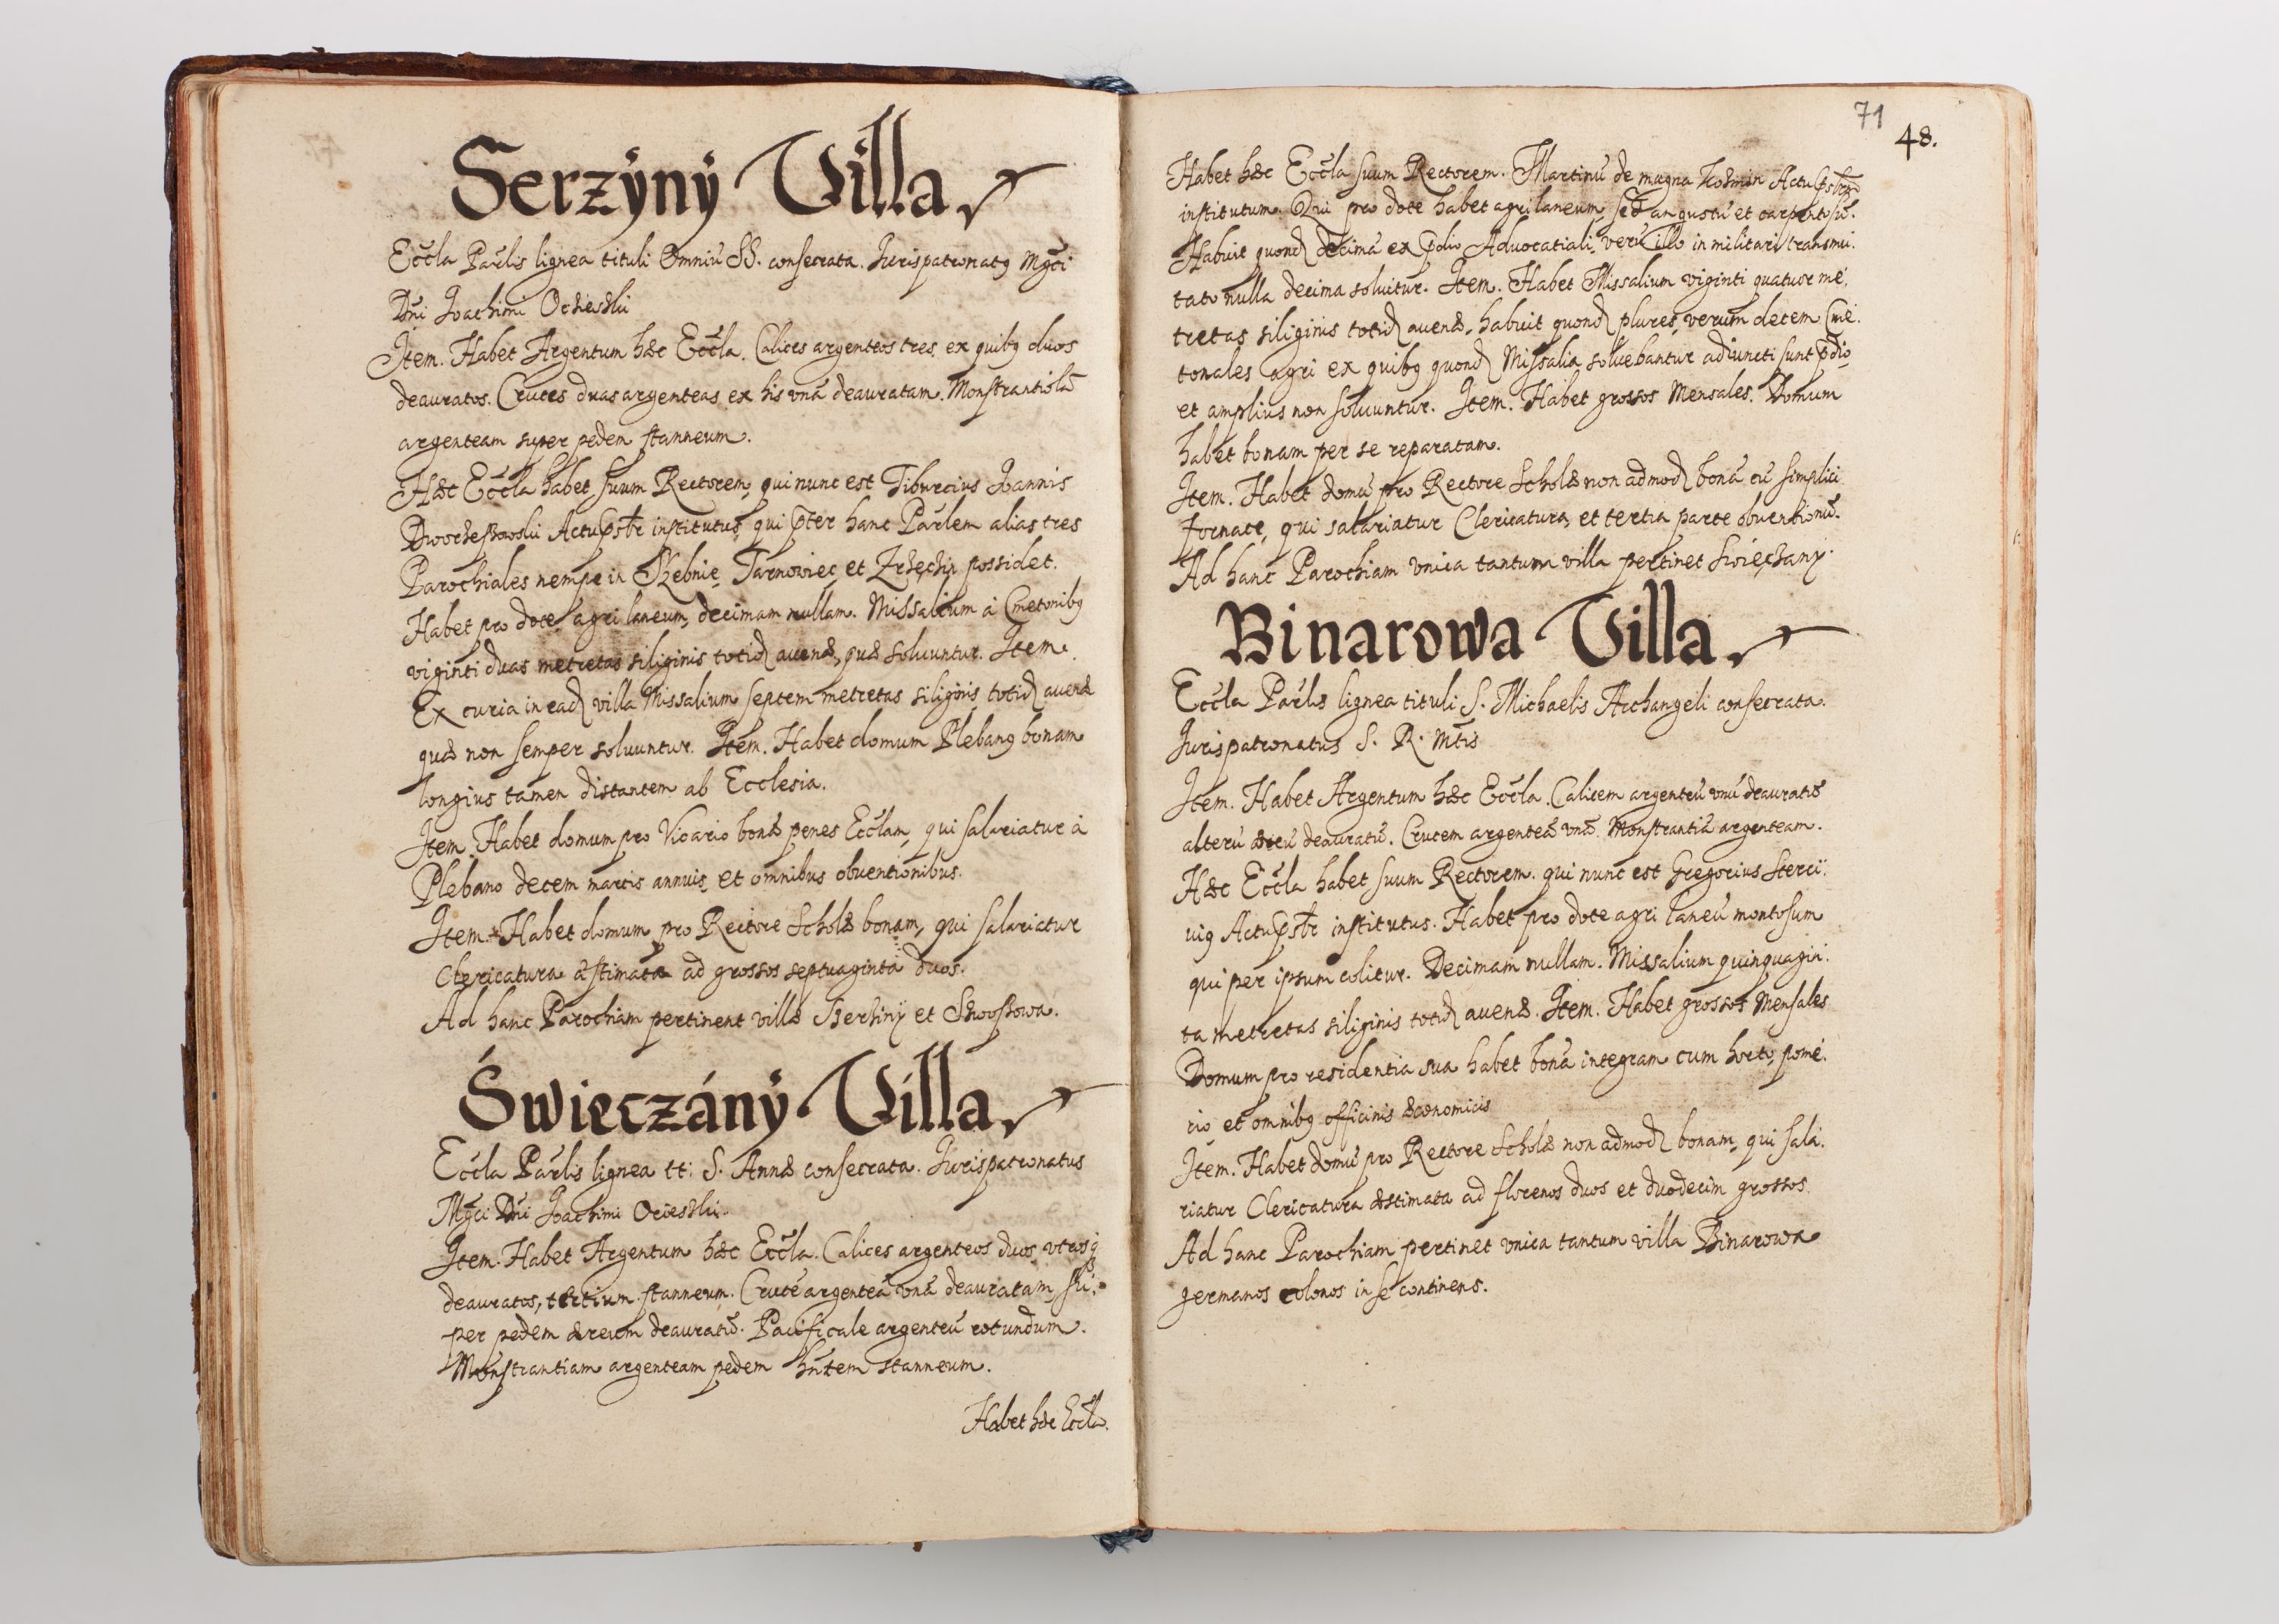 Serzÿnÿ Villa
Eccła Parlis lignea tituli Omniũ SS. consecrata. Jurispatronatq Mgci
Dñi Joachimi Ocieski
Item. Habet Argentum hæc Eccła. Calices argenteos tres, ex quibq duos
deauratos. Cruces duas argenteas ex his vnã deauratam. Monstrantiolã
argenteam super pedem stanneum.
Hæc Eccła habet suum Rectorem, qui nunc est Tiburcius Joannis
Actupsbr institutus, qui pter hanc Parlem alias tres
Parochiales nempe in Szebnie Tarnowiec et possidet.
Habet pro dote agri laneum, decimam nullam. Missalium à Cmetonibq
viginti duas metretas siliginis totid auenæ, quæ soluuntur. Item
Ex curia in ead villa Missalium septem metretas siliginis totid auenæ
quæ non semper soluuntur. Item. Habet domum Plebanq bonam
longius tamen distantem ab Ecclesia.
Item. Habet domum pro Vicario bonã penes Ecclam, qui salariatur à
Plebano decem marcis annuis et omnibus obuentionibus.
Item Habet domum pro Rectore Scholæ bonam, qui salariatur
Clericatura æstimata ad grossos septuaginta duos.
Ad hanc Parochiam pertinent villæ Szerzinÿ et Swoszowa.
Świeczánÿ Villa
Eccła Parlis lignea tt: S. Annæ consecrata. Jurispatronatus
Mgci Dñi Joachimi Ocieski.
Item. Habet Argentum hæc Eccła. Calices argenteos duos vtrosq
deauratos, tertium stanneum. Crucẽ argenteã vnã deauratam su,
per pedem æreum deauratũ. Pacificale argenteũ rotundum.
Monstrantiam argenteam pedem hñtem stanneum.
Habet hæc Eccła.
71
48.
Habet hæc Eccła suum Rectorem. Martinũ de magna Actupsbrũ
institutum. Qui pro dote habet agri laneum, sed angustũ et
Habuit quond decimã ex pdio Aduocatiali, verũ illo in militari transmu,
tato nulla decima soluitur. Item. Habet Missalium viginti quatuor me,
tretas siliginis totid auenæ, habuit quond plures, verum decem Cme,
tonales agri ex quibq quond Missalia soluebantur adiuncti sunt pdio
et amplius non soluuntur. Item. Habet grossos Mensales. Domum
habet bonam per se reparatam.
Item. Habet domũ pro Rectore Scholæ non admod bonã cũ simplici
fornace, qui salariatur Clericatura et tertia parte obuentionũ.
Ad hanc Parochiam vnica tantum villa pertinet Swięczany.
Binarowa Villa
Eccła Parlis lignea tituli S. Michaelis Archangeli consecrata.
Jurispatronatus S. R. Mtis
Item. Habet Argentum hæc Eccła. Calicem argenteũ vnũ deauratũ
alterũ æreũ deauratũ. Crucem argenteã vnã. Monstrantiã argenteam.
Hæc Eccła habet suum Rectorem. qui nunc est Gregorius
Actupsbr institutus. Habet pro dote agri laneũ montosum
qui per ipsum colitur. Decimam nullam. Missalium quinquagin,
ta metretas siliginis totid auenæ. Item. Habet grossos Mensales
Domum pro residentia sua habet bonã integram cum horto, pome,
rio et omnibq officinis œconomicis
Item. Habet domũ pro Rectore Scholæ non admod bonam, qui sala,
riatur Clericatura æstimata ad florenos duos et duodecim grossos.
Ad hanc Parochiam pertinet vnica tantum villa Binarowa
germanos colonos in se continens.